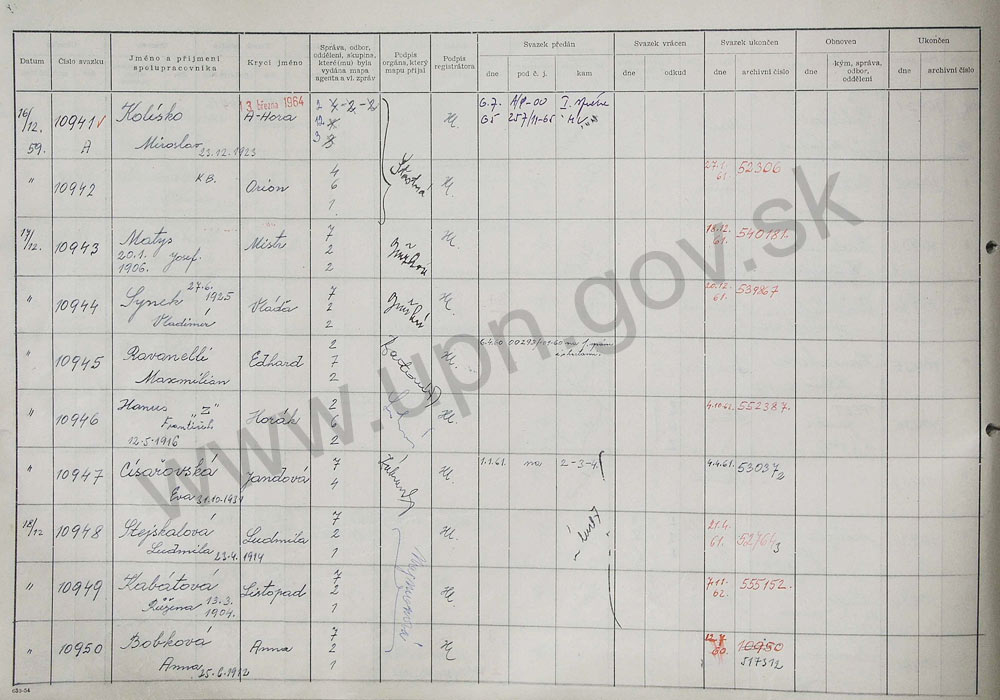 Datum
Číslo svazku
Jméno a příjmení
spolupracovníka
Krycí jméno
Správa, odbor,
oddělení, skupina,
které(mu) byla
vydána mapa
agenta a vl. zpráv
Podpis
orgána, který
mapu přijal
Podpis
registrátora
Svazek předán
dne
pod č. j.
kam
Svazek vrácen
dne
odkud
Svazek ukončen
dne
archivní číslo
Obnoven
dne
kým, správa,
odbor,
oddělení
Ukončen
dne
archivní číslo
16/12. 59.
10941
A
Kolísko
Miroslav 23.12.1923
13. března 1964
A-Hora
6.7. A/P-00 I. správa
65 257/11-65
" 10942
KB.
Orion
4
6
1.
Šťastná
27.1. 61. 52306
17/12. 10943
Matys
20.1. Josef.
1906.
Mistr
7
2
2
18.12. 61. 540181.
" 10944
27.6. 1925
Synek
Vladimír
Vláďa
7
2
2
20.12. 61. 539867
" 10945
Ravanelli
Maxmilián
Edhard
2
7
2
6.4.60 00293/
" 10946
Hanus "Z"
František
12.5.1916
Horák
2
6
2
4.10.61. 552387.
" 10947
Císařovská
Eva 31.10.1939
Jandová
7
4
1.1.61. na 2-3-4.
4.4.61. 530372
18/12 10948
Stejskalová
Ludmila 23.4. 1914
Ludmila
7
2
1
21.4. 61. 527643
" 10949
Kabátová
Růžena 13.3. 1904.
Listopad
7
2
1
7.11. 62. 555152.
" 10950
Bobková
Anna 25.6.1912
Anna
7
2
1
12.7. 60. 10950
517312
635-54
www.upn.gov.sk